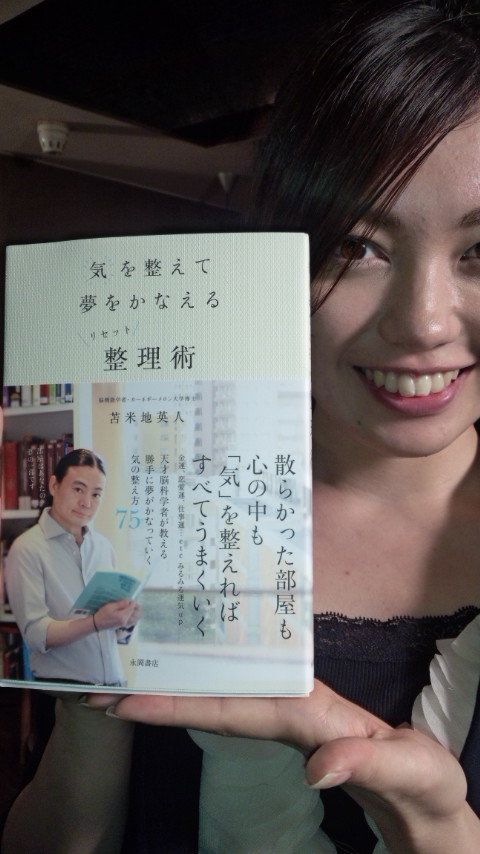 気を整えて
夢をかなえる
リセット
整理術
脳機能学者・カーネギーメロン大学博士
苫米地英人
散らかった部屋も
心の中も
「気」を整えれば
すべてうまくいく
金運、恋愛運、仕事運…etc みるみる運気up
天才脳科学者が教える
勝手に夢がかなっていく
気の整え方75
永岡書店